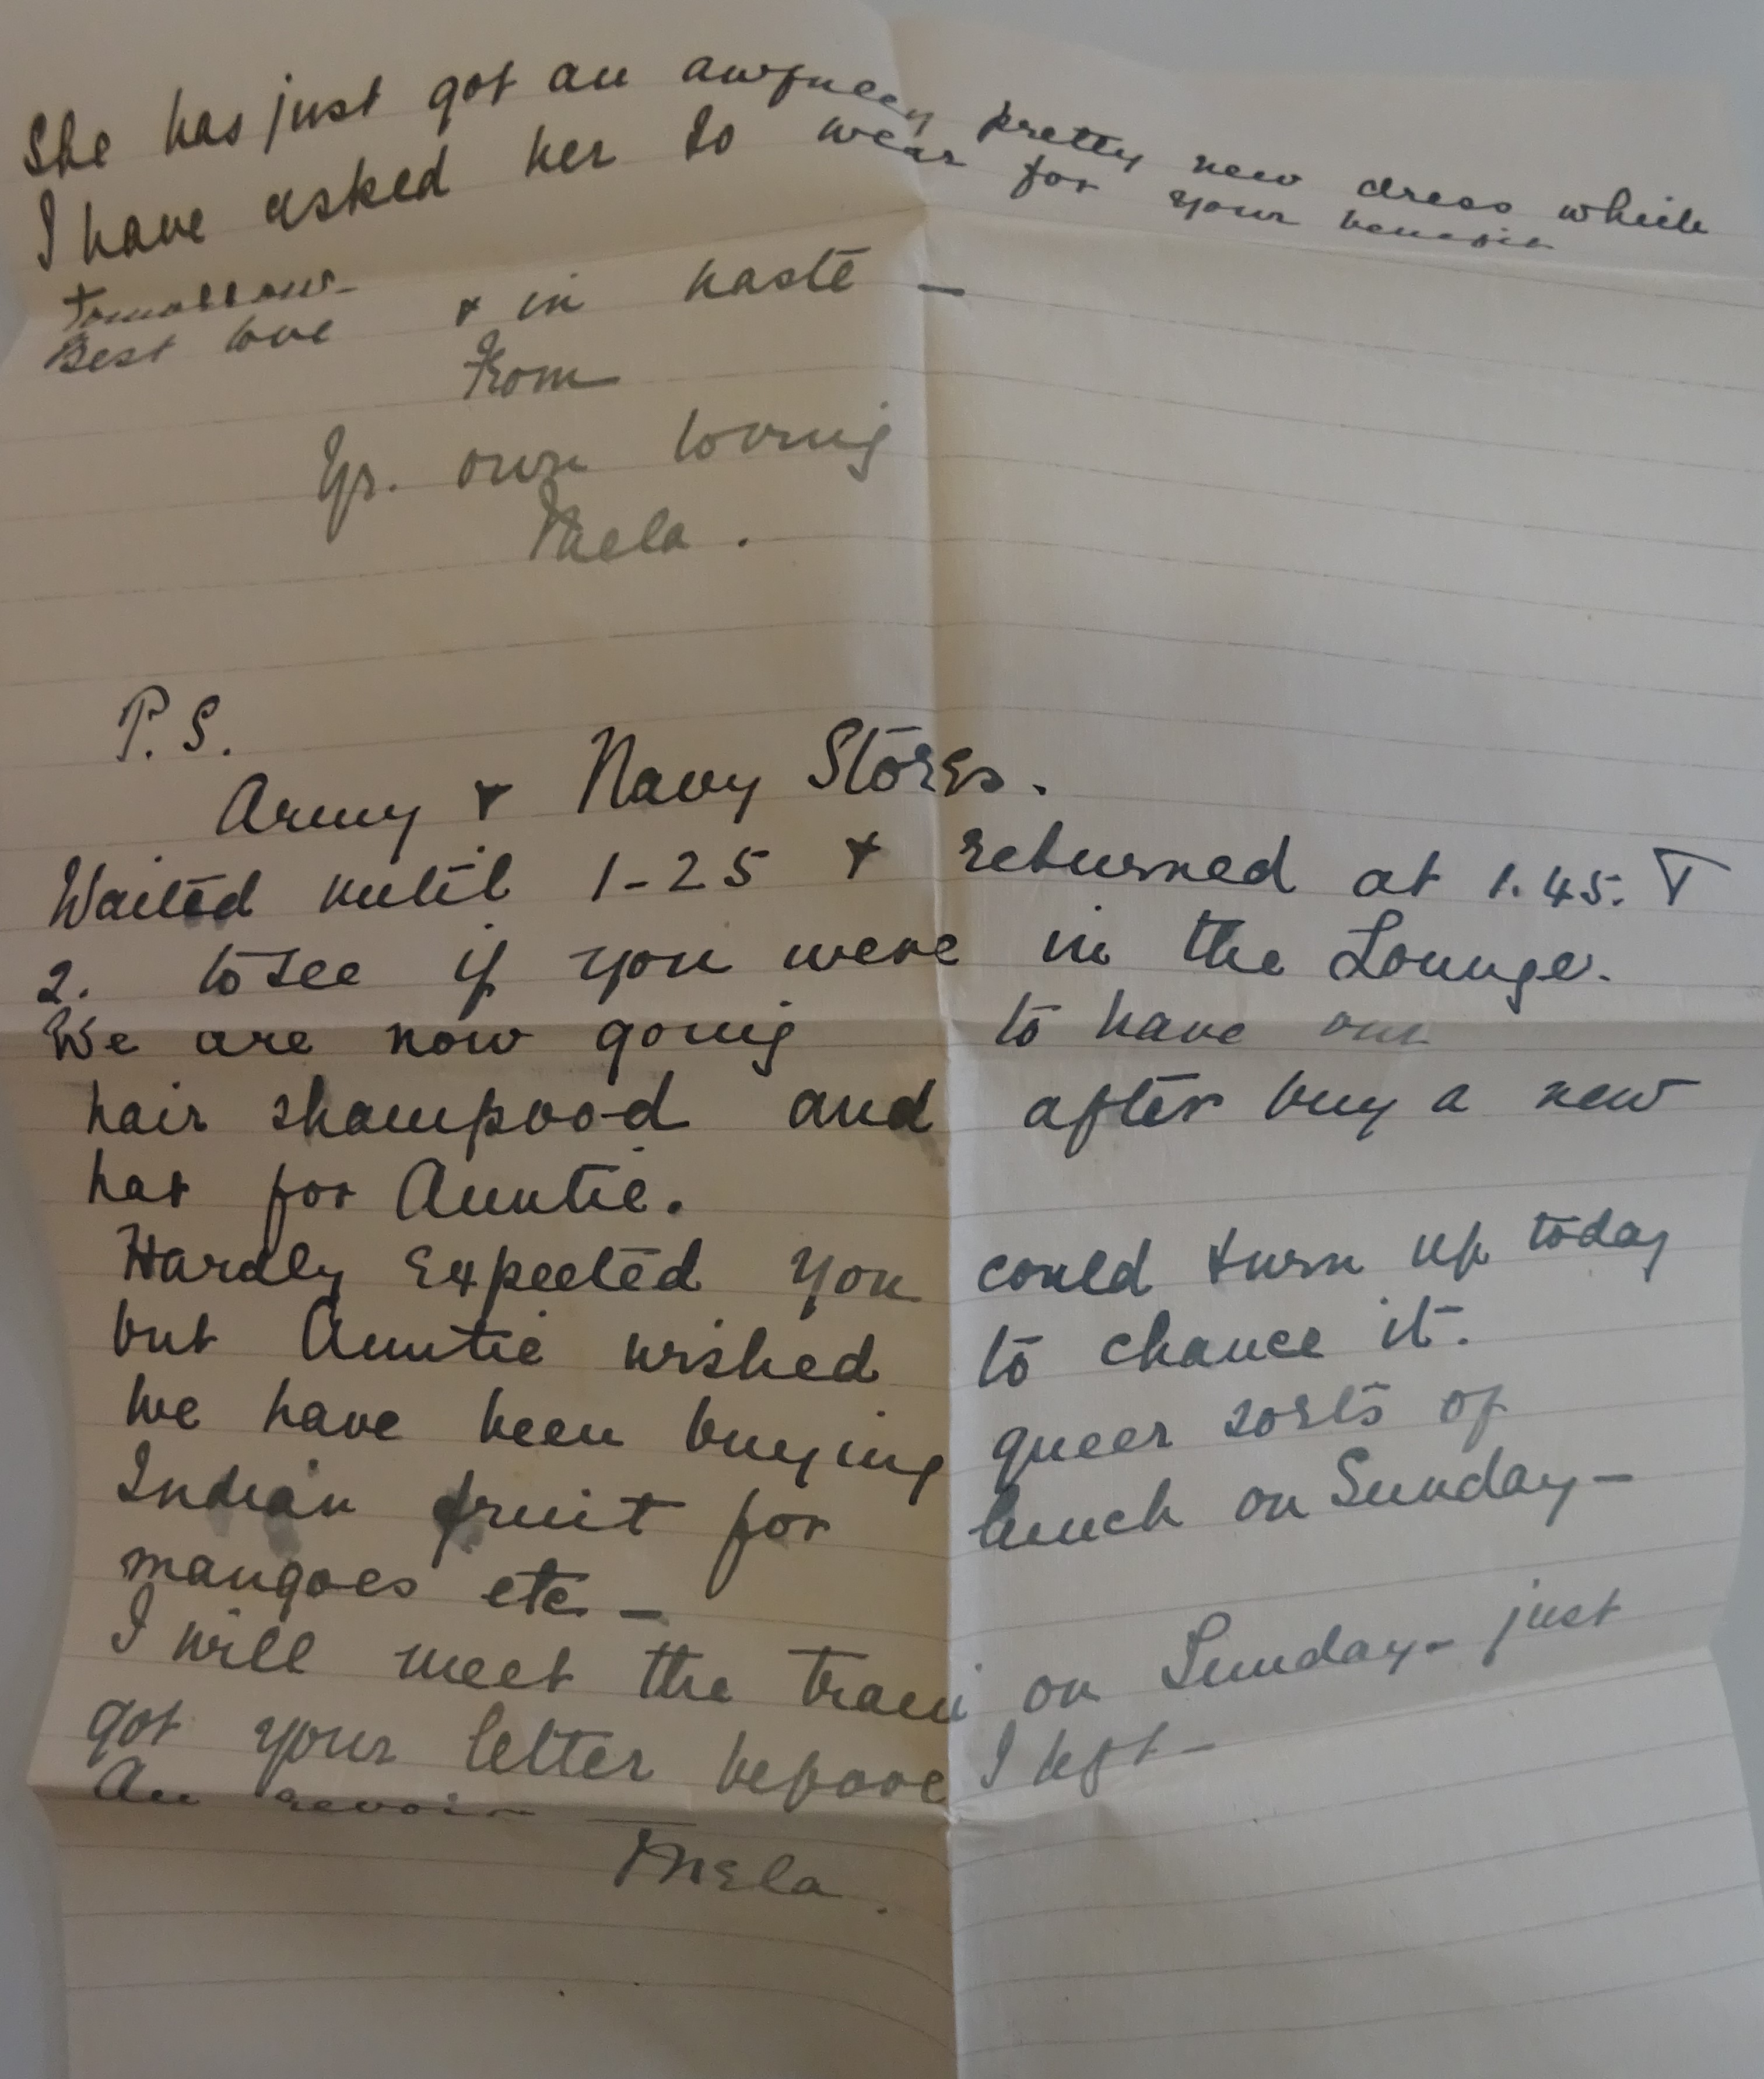 She has just got an awfully pretty new dress which
I have asked her to wear for your benefit
tomorrow -
Best love & in haste -
From
Yr. own loving
Thela.
P.S.
Army & Navy Stores.
Waited until 1-25 & returned at 1.45.
2. to see if you were in the Lounge.
We are now going to have our
hair shampood and after buy a new
hat for Auntie.
Hardly expected you could turn up today
but Auntie wished to chance it.
We have been buying queer sorts of
Indian fruit for lunch on Sunday -
mangoes etc -
I will meet the train on Sunday - just
got your letter before I left -
Au revoir -
Thela.